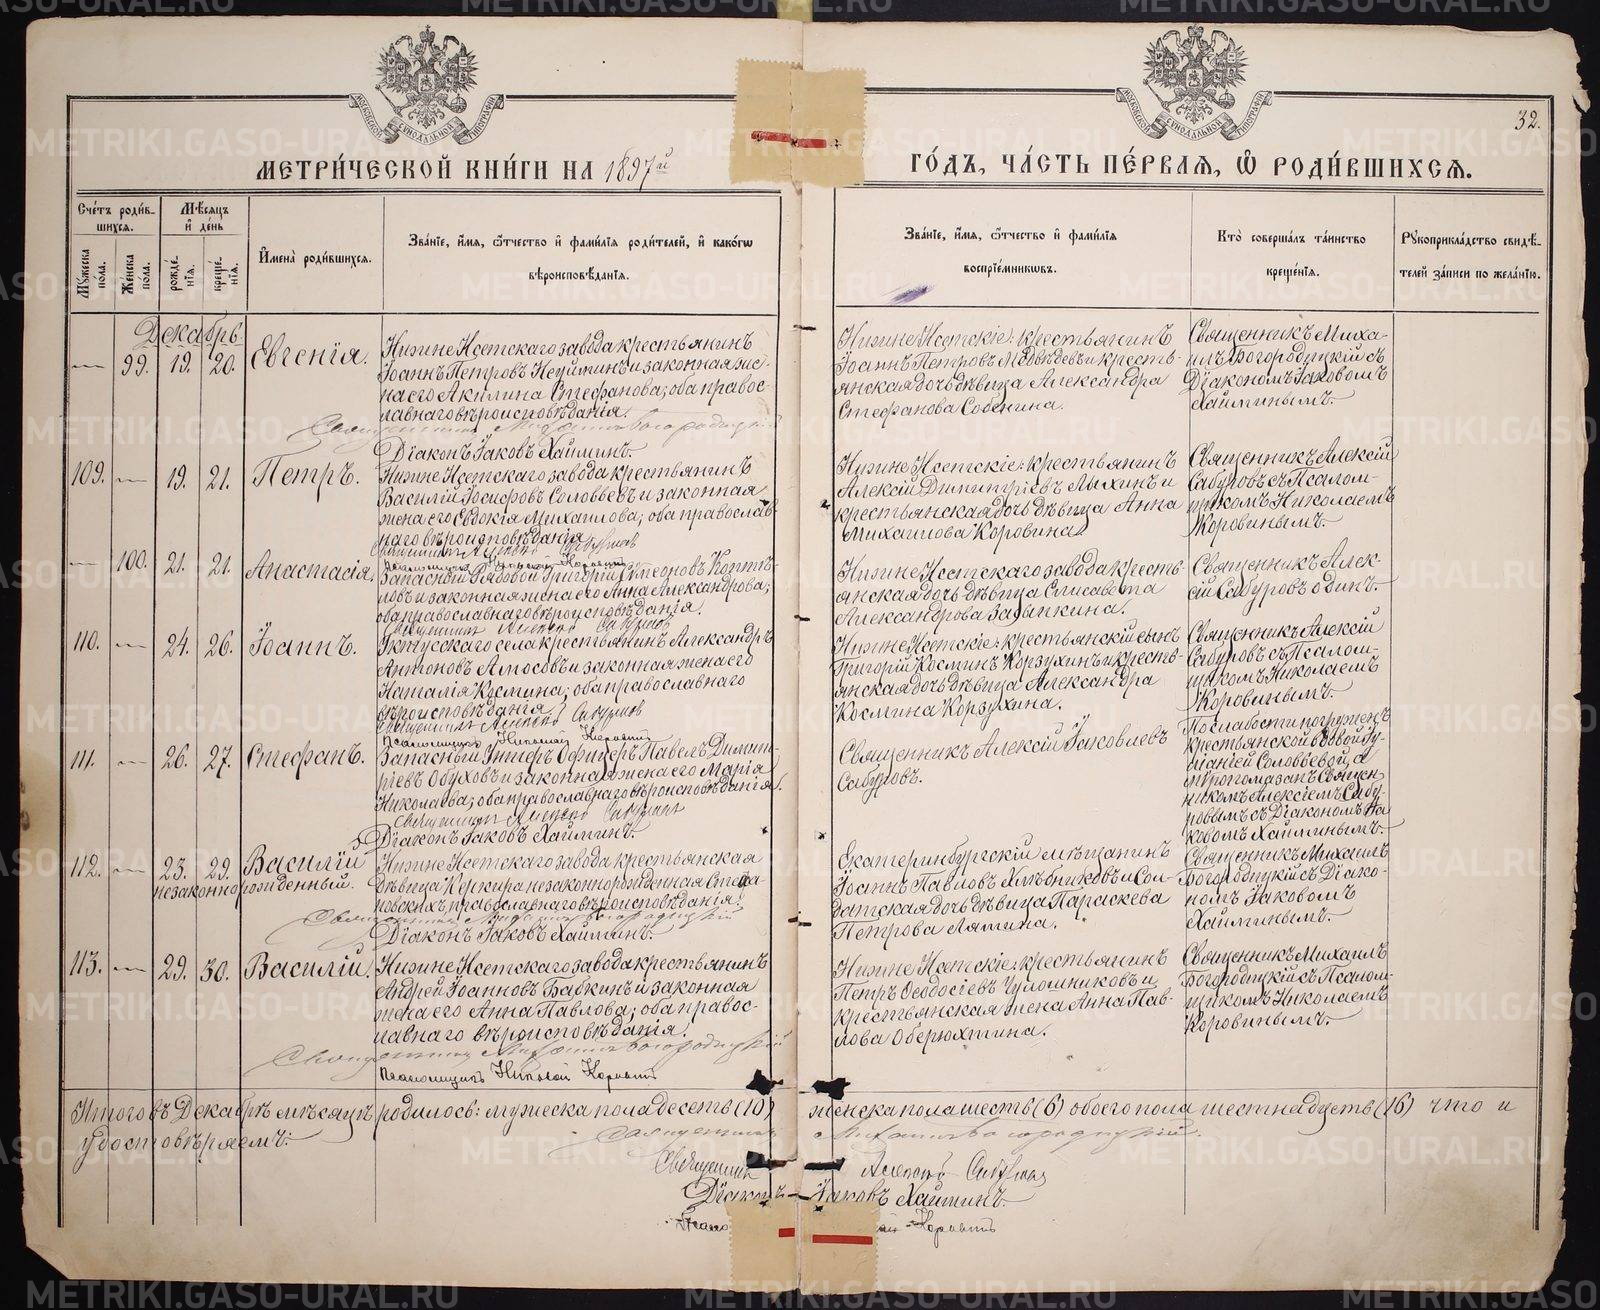 МОСКОВСКОЙ СѴНОДАЛЬНОЙ ТИПОГРАФІИ
МОСКОВСКОЙ СѴНОДАЛЬНОЙ ТИПОГРАФІИ
32.
МЕТРИ́ЧЕСКОЙ КНИ́ГИ НА 1897й
ГО́ДЪ, ЧА́СТЬ ПЕ́РВАЯ, Ѡ РОДИ́ВШИХСЯ.
Сче́тъ роди́в-
шихся.
Му́жеска
пола.
Же́нска
пола.
Мѣ́сяцъ
и́ де́нь
рожде́-
нія.
креще́-
нія.
И́мена̀ роди́вшихся.
Зва́ніе, и́мя, ѻ́тчество и́ фами́лія роди́телей, и́ како́гѡ
вѣроисповѣ́данія.
Зва́ніе, и́мя, ѻ́тчество и́ фами́лія
воспріе́мниковъ.
Кто̀ соверша́лъ та́инство
креще́нія.
Рукоприкла́дство свидѣ́-
телей за́писи по жела́нію.
Декабрь
— 99. 19. 20. Евгенія.
Нижне Исетскаго завода крестьянинъ
Іоаннъ Петровъ Неуйминъ и законная же-
на его Акилина Стефанова; оба правос-
лавнаго вѣроисповѣданія.
Священникъ Михаилъ Богородицкій
Діаконъ Іаковъ Хайминъ.
Нижне Исетскіе: крестьянинъ
Іоаннъ Петровъ Медвѣдевъ и кресть-
янская дочь дѣвица Александра
Стефанова Собенина.
Священникъ Миха-
илъ Богородицкій съ
Діакономъ Іаковомъ
Хайминымъ.
109. — 19. 21. Петръ.
Нижне Исетскаго завода крестьянинъ
Василій Іосифовъ Соловьевъ и законная
жена его Евдокія Михаилова; оба православ-
наго вѣроисповѣданія
Священникъ Алексій Сабуровъ
Псаломщикъ Николай Коровинъ
Нижне Исетскіе: крестьянинъ
Алексій Димитріевъ Лыхинъ и
крестьянская дочь дѣвица Анна
Михаилова Коровина.
Священникъ Алексій
Сабуровъ съ Псалом-
щикомъ Николаемъ
Коровинымъ.
— 100. 21. 21. Анастасія.
Запасный рядовой Григорій Симеоновъ Коптѣ-
ловъ и законная жена его Анна Александрова;
оба православнаго вѣроисповѣданія.
Священникъ Алексій Сабуровъ
Нижне Исетскаго завода кресть-
янская дочь дѣвица Елисавета
Александрова Задыпкина.
Священникъ Алек-
сій Сабуровъ одинъ.
110. — 24. 26. Іоаннъ.
Уктусскаго села крестьянинъ Александръ
Антоновъ Амосовъ и законная жена его
Наталія Космина; оба православнаго
вѣроисповѣданія.
Священникъ Алексій Сабуровъ
Псаломщикъ Николай Коровинъ
Нижне Исетскіе: крестьянскій сынъ
Григорій Косминъ Корзухинъ и кресть-
янская дочь дѣвица Александра
Космина Корзухина.
Священникъ Алексій
Сабуровъ съ Псалом-
щикомъ Николаемъ
Коровинымъ.
111. — 26. 27. Стефанъ.
Запасный Унтеръ Офицеръ Павелъ Димит-
ріевъ Обуховъ и законная жена его Марія
Николаева; оба православнаго вѣроисповѣданія.
Священникъ Алексій Сабуровъ
Діаконъ Іаковъ Хайминъ.
Священникъ Алексій Іаковлевъ
Сабуровъ.
По слабости погруженъ
крестьянской вдовой Іу-
ліаніей Соловьевой, а
мѵропомазанъ Священ-
никомъ Алексіемъ Сабу-
ровымъ съ Діакономъ Іа-
ковомъ Хайминымъ.
112. — 23. 29. Василій
незаконнорожденный.
Нижне Исетскаго завода крестьянская
дѣвица Керкира незаконнорожденная Степа-
новскихъ православнаго вѣроисповѣданія.
Священникъ Михаилъ Богородицкій
Діаконъ Іаковъ Хайминъ.
Екатеринбургскій мѣщанинъ
Іоаннъ Павловъ Хлѣбниковъ и Сол-
датская дочь дѣвица Параскева
Петрова Лямина.
Священникъ Михаилъ
Богородицкій съ Діако-
номъ Іаковомъ
Хайминымъ.
113. — 29. 30. Василій.
Нижне Исетскаго завода крестьянинъ
Андрей Іоанновъ Бабкинъ и законная
жена его Анна Павлова; оба правос-
лавнаго вѣроисповѣданія.
Священникъ Михаилъ Богородицкій
Псаломщикъ Николай Коровинъ
Нижне Исетскіе: крестьянинъ
Петръ Ѳеодосіевъ Чулошниковъ и
крестьянская жена Анна Пав-
лова Оберюхтина.
Священникъ Михаилъ
Богородицкій съ Псалом-
щикомъ Николаемъ
Коровинымъ.
Итого въ Декабрѣ мѣсяцѣ родилось: мужеска пола десять (10) женска пола шесть (6) обоего пола шестнадцать (16) что и
удостовѣряемъ:
Священникъ Михаилъ Богородицкій.
Священникъ Алексій Сабуровъ
Діаконъ Іаковъ Хайминъ.
Псало Коровинъ
METRIKI.GASO-URAL.RU